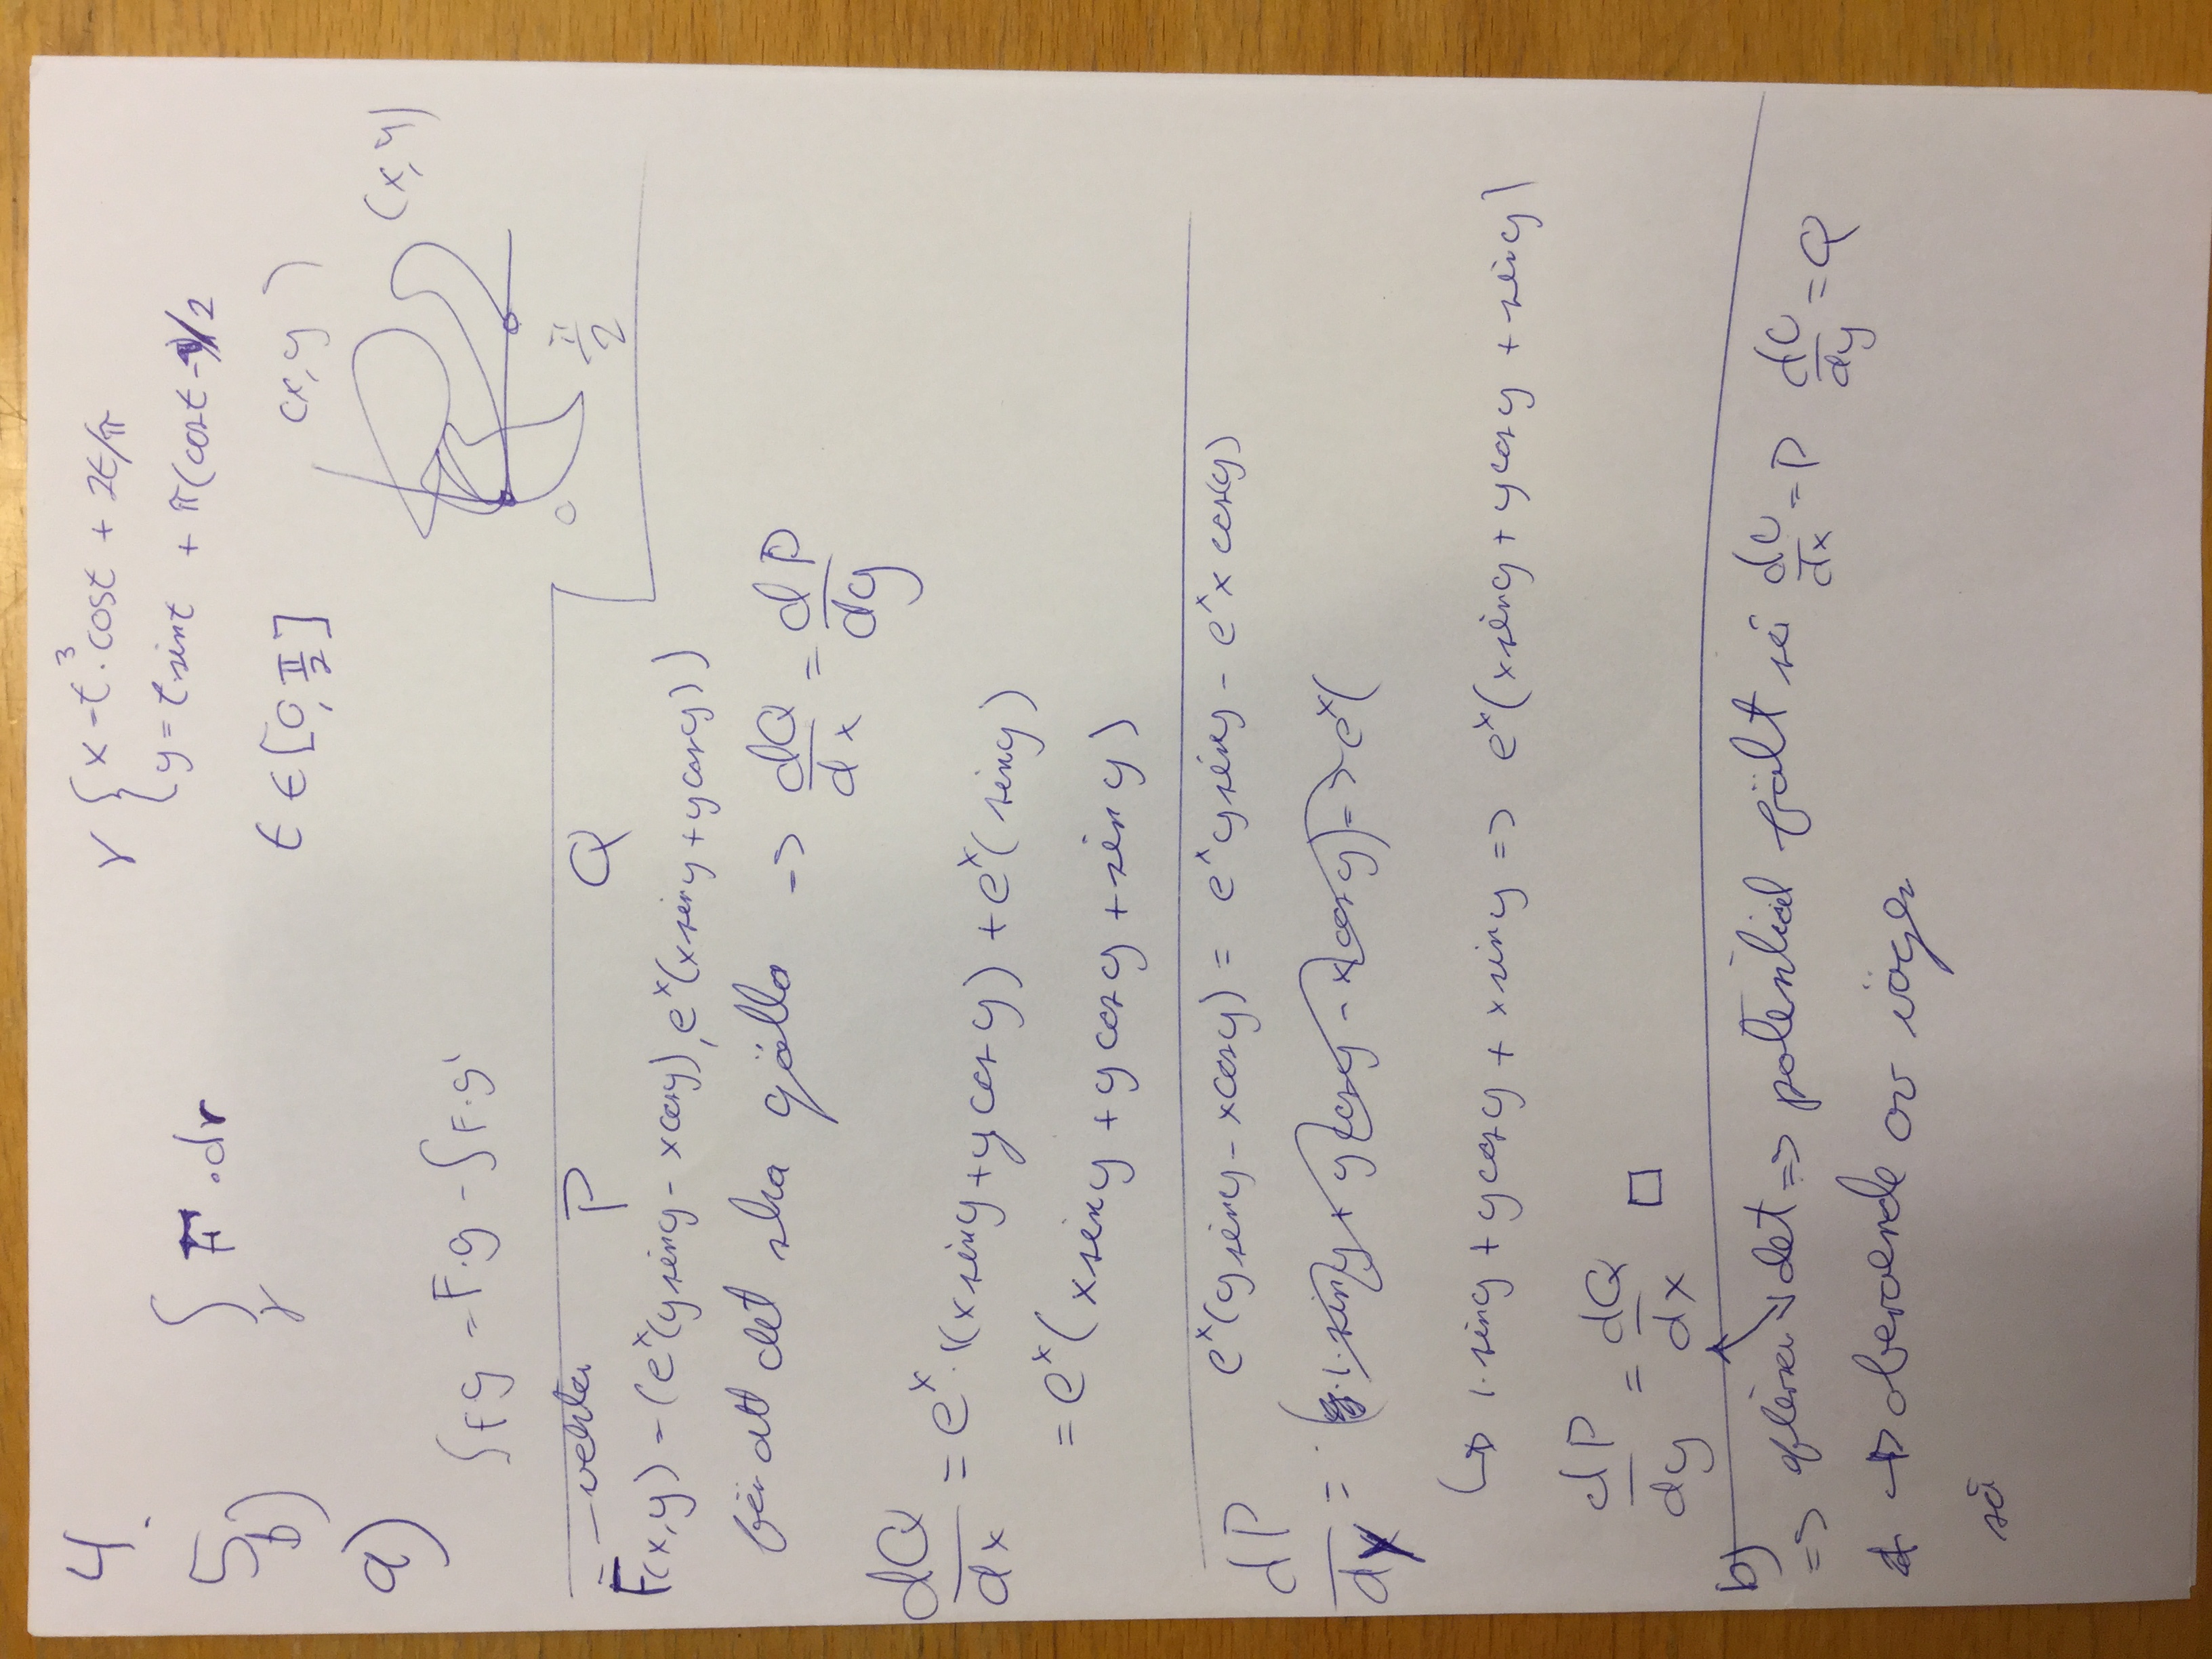 4.
γ { x = t³·cost + 2t/π
y = t·sint + π(cost - 1)/2
5
b)
∫γ F·dr
t ∈ [0, π/2]
(x, y)
a)
(x, y)
∫fg = F·g - ∫F·g'
0
π/2
P Q
F(x,y) = (e^x(y siny - x cosy), e^x(x siny + y cosy))
för att det ska gälla => dQ/dx = dP/dy
dQ/dx = e^x·1(x siny + y cosy) + e^x(siny)
= e^x(x siny + y cosy + siny)
e^x(y siny - x cosy) = e^x y siny - e^x x cos(y)
dP/dy = (1·siny + y cosy - x cosy) => e^x(
↳ 1·siny + y cosy + x siny => e^x(x siny + y cosy + siny)
dP/dy = dQ/dx □
b)
=> det => potential fält så dU/dx = P dU/dy = Q
→ oberoende av vägen
så